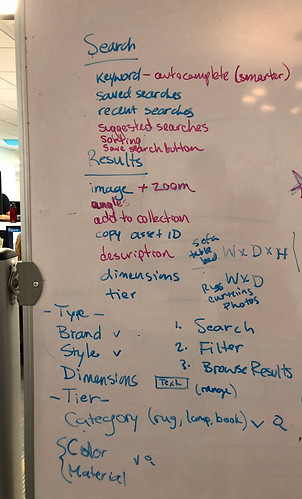 Search
keyword - autocomplete (smarter)
saved searches
recent searches
suggested searches
sorting
save search button
Results
image + zoom
angles
add to collection
copy asset ID
description
sofa
table
W x D x H
dimensions
Rugs
curtains
photos
W x D
tier
- Type -
Brand v
Style v
Dimensions
- Tier -
Category (rug, lamp, book) v Q
{ Color
Material v Q
1. Search
2. Filter
3. Browse Results
Text
(range)